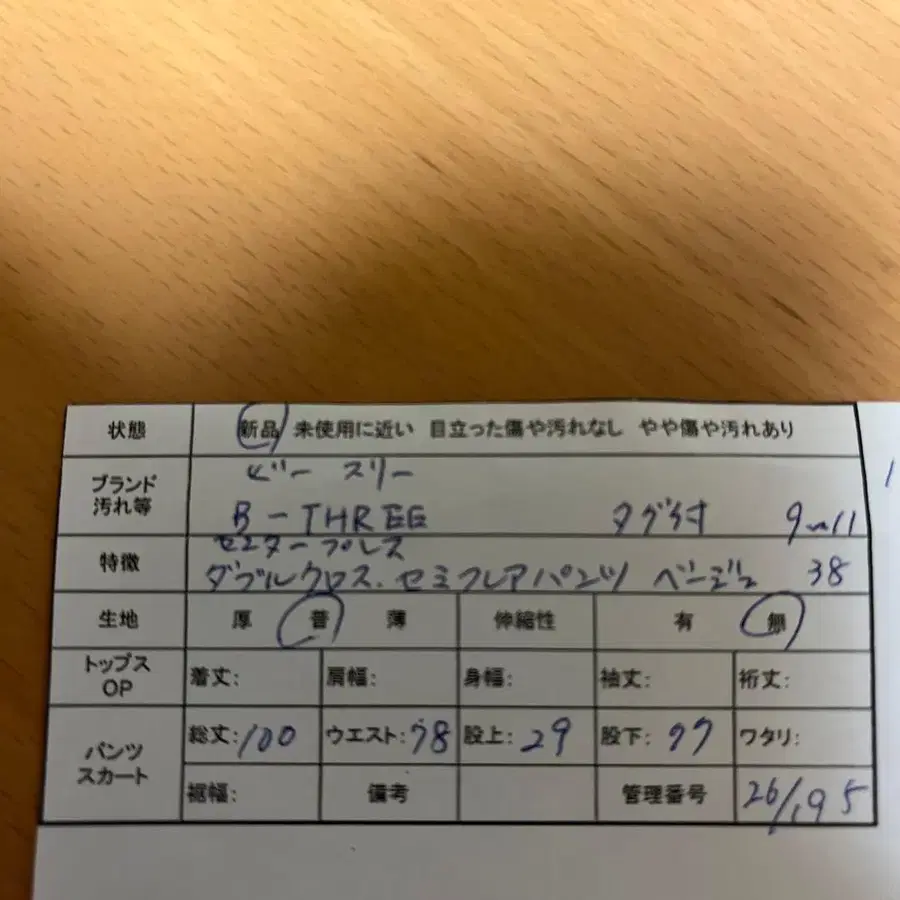 状態 新品 未使用に近い 目立った傷や汚れなし やや傷や汚れあり
ビー スリー
ブランド
汚れ等 B-THREE タグ付 9〜11
センタープレス
特徴 ダブルクロス.セミフレアパンツ ベージュ 38
生地 厚 普 薄 伸縮性 有 無
トップス
OP 着丈: 肩幅: 身幅: 袖丈: 裄丈:
パンツ
スカート 総丈:100 ウエスト:78 股上:29 股下:77 ワタリ:
裾幅: 備考 管理番号 26/195